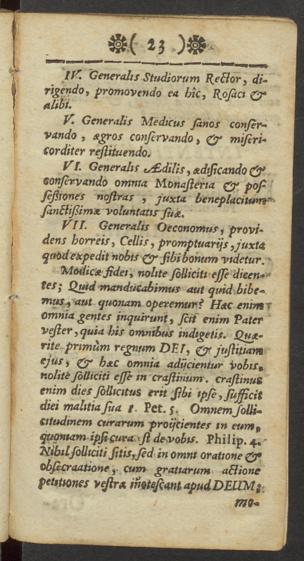 ( 23 )
IV. Generalis Studiorum Rector, di-
rigendo, promovendo ea hîc, Rosaci &
alibi.
V. Generalis Medicus sanos conser-
vando, ægros conservando, & miseri-
corditer restituendo.
VI. Generalis Ædilis, ædificando &
conservando omnia Monasteria & pos-
sessiones nostras, juxta beneplacitum
sanctissimæ voluntatis suæ.
VII. Generalis Oeconomus, provi-
dens horreis, Cellis, promptuarijs, juxta
quod expedit nobis & sibi bonum videtur.
Modicæ fidei, nolite solliciti esse dicen-
tes; Quid manducabimus aut quid bibe-
mus, aut quonam operemur? Hæc enim
omnia gentes inquirunt, scit enim Pater
vester, quia his omnibus indigetis. Quæ-
rite primùm regnum DEI, & justitiam
ejus, & hæc omnia adijcientur vobis,
nolite solliciti esse in crastinum. crastinus
enim dies sollicitus erit sibi ipse, sufficit
diei malitia sua 1. Pet. 5. Omnem solli-
citudinem curarum proijcientes in eum,
quoniam ipsi cura st de vobis. Philip. 4.
Nihil solliciti sitis, sed in omni oratione &
obsecraatione, cum gratiarum actione
petitiones vestræ iñotescant apud DEUM:
me-